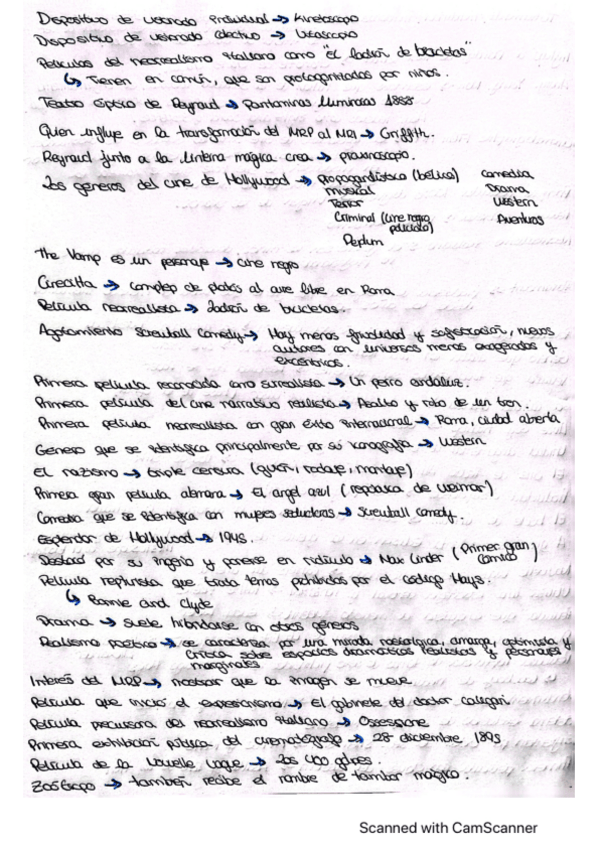 Dispositivo de visionado individual → Kinetoscopio
Dispositivo de visionado colectivo → Vitascopio
Películas del neorrealismo italiano como "el ladrón de bicicletas"
↳ Tienen en común, que son protagonizados por niños.
Teatro óptico de Reynaud → Pantominas luminosas 1888
Quien influye en la transformación del MRP al MRI → Griffith.
Reynaud junto a la linterna mágica crea → praxinoscopio.
Los géneros del cine de Hollywood → propagandístico (bélico) comedia
musical Drama
Terror Western
Criminal (cine negro policiaco) Aventuras
Peplum
The Vamp es un personaje → cine negro
Cinecittà → complejo de platós al aire libre en Roma
Película neorrealista → Ladrón de bicicletas.
Agotamiento Screwball Comedy → Hay menos frivolidad y sofisticación, nuevos
autores con universos menos exagerados y
excéntricos.
Primera película reconocida como surrealista → Un perro andaluz.
Primera película del cine narrativo realista → Asalto y robo de un tren.
Primera película neorrealista con gran éxito internacional → Roma, ciudad abierta
Género que se identifica principalmente por su iconografía → Western
El nazismo → triple censura (guión, rodaje, montaje)
Primera gran película alemana → El angel azul (república de weimar)
Comedia que se identifica con mujeres seductoras → Screwball comedy.
Esplendor de Hollywood → 1945.
Destacó por su ingenio y ponerse en ridículo → Max Linder (Primer gran cómico)
Película que trata temas prohibidos por el código Hays.
↳ Bonnie and Clyde
Drama → suele hibridarse con otros géneros
Realismo poético → se caracteriza por una mirada nostálgica, amarga, optimista y
crítica sobre espacios dramáticos realistas y personajes
marginales
Interés del MRP → mostrar que la imagen se mueve.
Película que inició el expresionismo → El gabinete del doctor caligari.
Película precursora del neorrealismo italiano → Ossessione
Primera exhibición pública del cinematógrafo → 28 diciembre 1895
Película de la Nouvelle Vague → Los 400 golpes.
Zoótropo → también recibe el nombre de tambor mágico.
Scanned with CamScanner